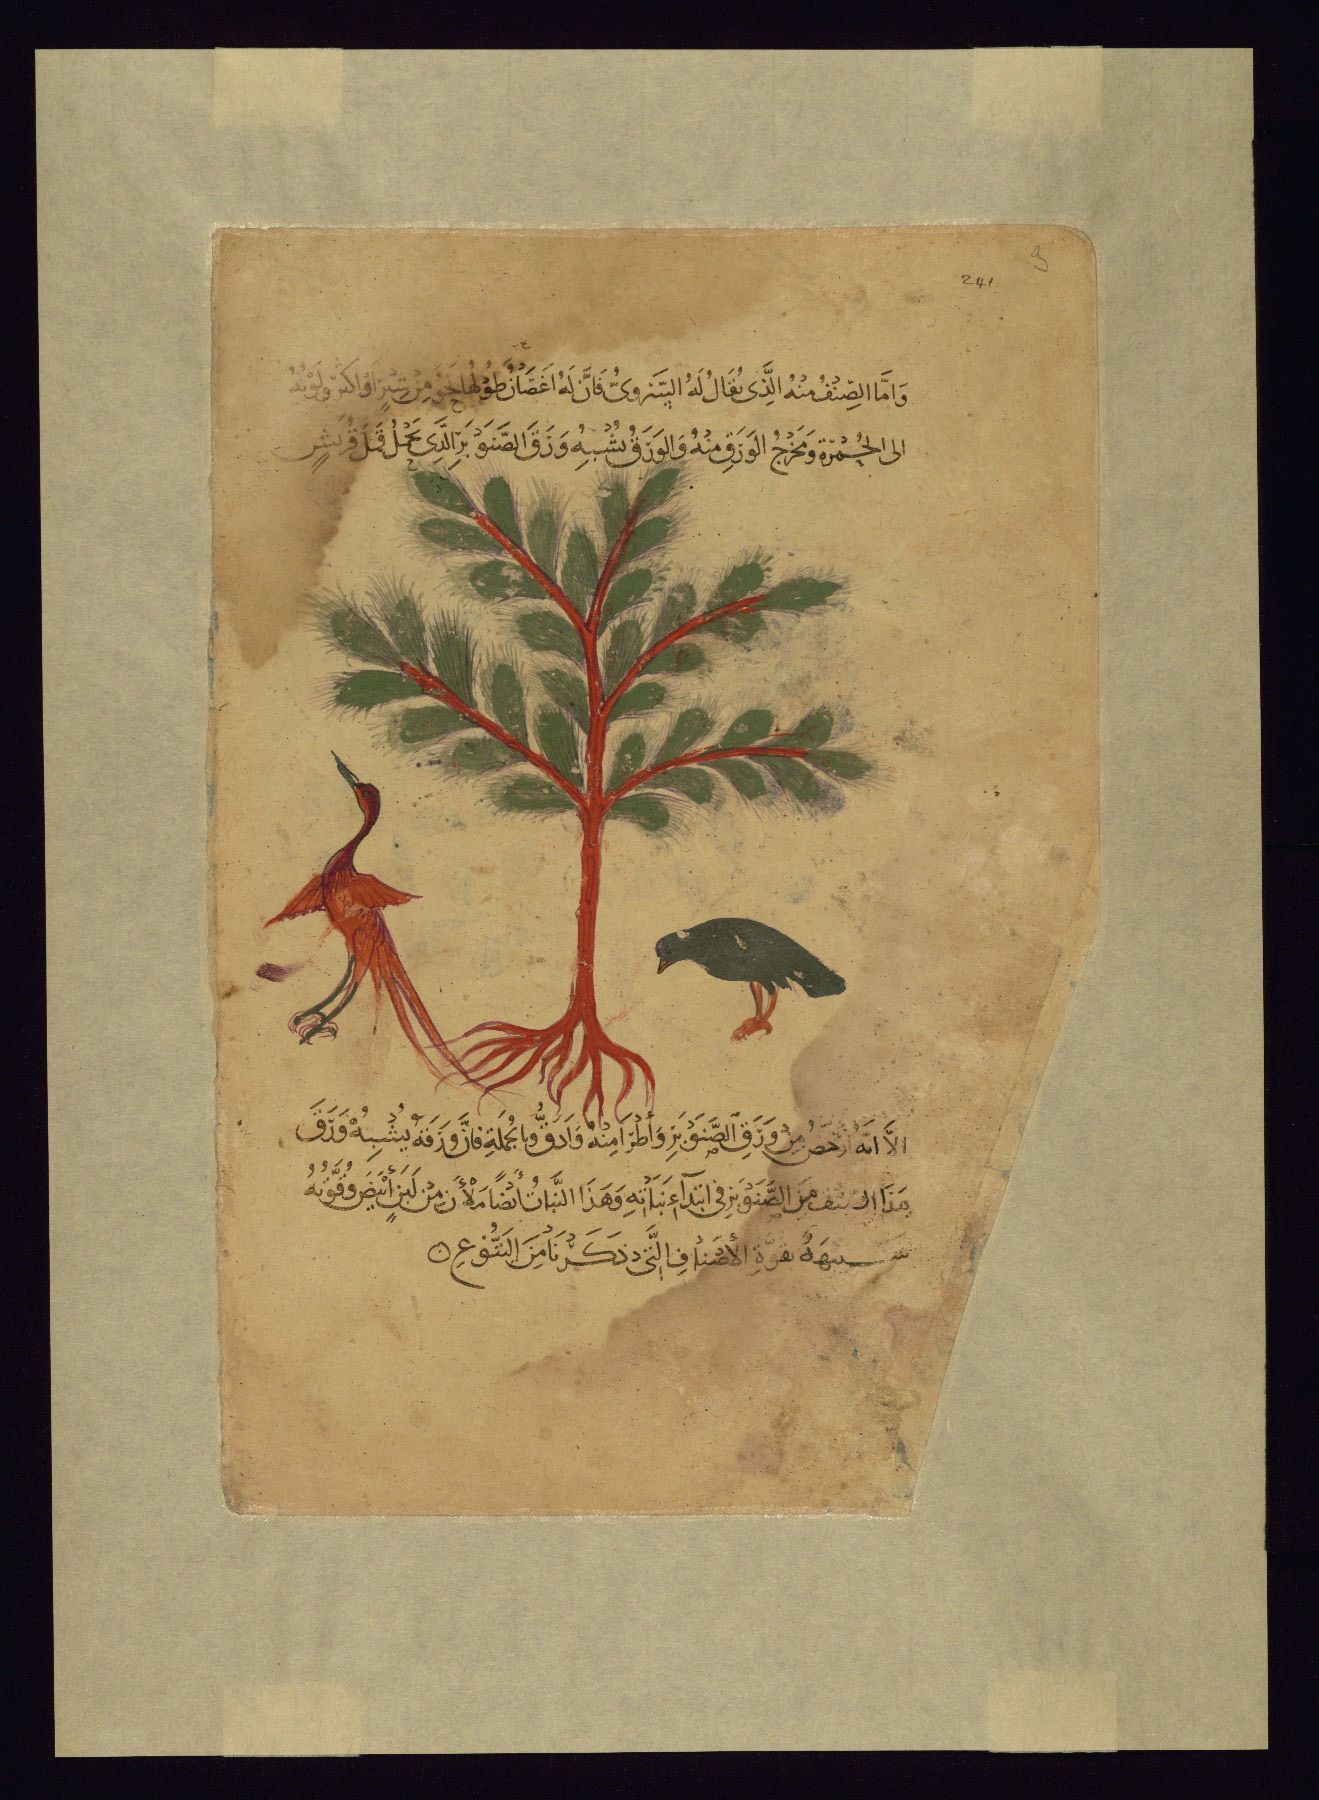 241
وَاَمَّا الصِّنْفُ مِنْهُ الَّذِى يُقَالُ لَهُ فَاَنَّ لَهُ اَغصَانٌ طُوْلُهَا نَحوٌ مِنْ شِبْرٍ اَوْ اَكثَر وَلَوْنُهُ
الى الحُمرَة وَمَخْرَجُ الوَرَقِ مِنْهُ وَالوَرَقُ يُشْبِهُ وَرَقَ الصَّنَوْبَرِ الَّذِى يَحْمِلُ قَمَلَ قُرَيْشٍ
الاَّ اَنَّهُ اَرْخَصُ مِنْ وَرَقِ الصَّنَوْبَرِ وَأَطْرَا مِنْهُ وَاَدَقُّ وَبالجُملَةِ فَاِنَّ وَرَقَهُ يُشْبِهُ وَرَقَ
هَذَا الصِّنْفِ مِنَ الصَّنَوْبَرِ فِى ابْتِدَآءِ نَبَاتِهِ وَهَذَا النَّبَاتُ أَيْضًا مَلْأَنُ مِنْ لَبَنٍ أَبْيَضَ وَقُوَّتُهُ
شَبِيهَةٌ بِقُوَّةِ الأَصْنَافِ الَّتِى ذَكَرْنَا مِنَ اليَتُّوْعِ